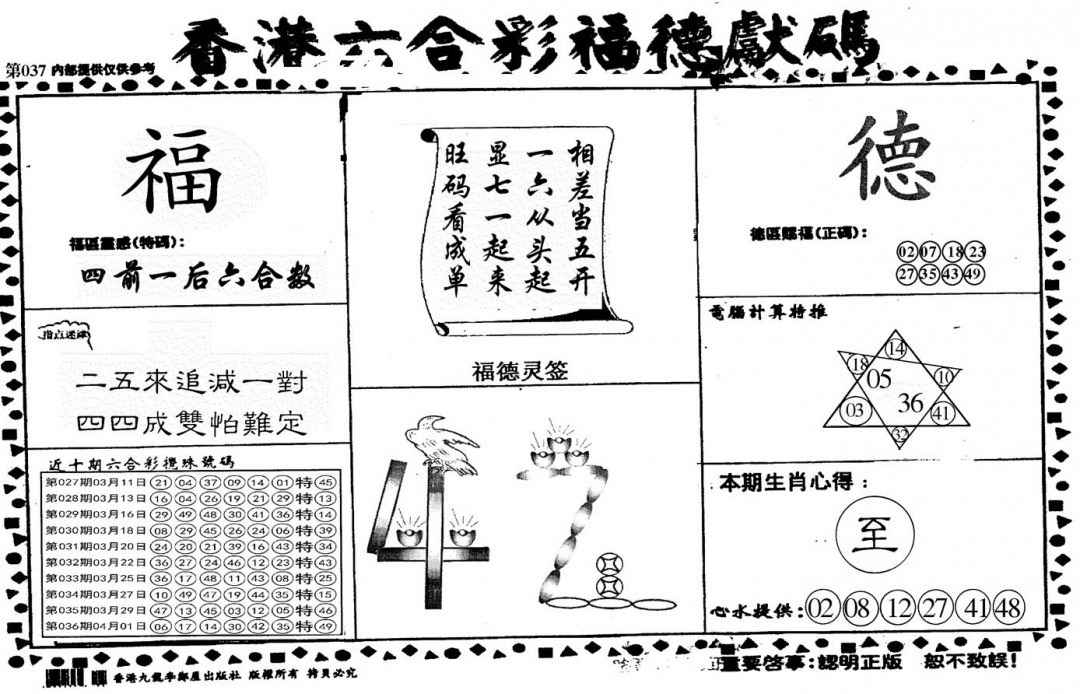 香港六合彩福德獻碼
第037 內部提供仅供参考
福
福區靈感(特碼):
四前一后六合数
指点迷津
二五來追減一對
四四成雙怕難定
近十期六合彩攪珠號碼
第027期03月11日 21 04 37 09 14 01 特 45
第028期03月13日 16 04 26 19 21 29 特 13
第029期03月16日 29 49 48 30 41 36 特 14
第030期03月18日 08 29 45 26 24 06 特 39
第031期03月20日 24 20 21 39 16 43 特 34
第032期03月22日 36 27 24 46 12 23 特 43
第033期03月25日 36 17 48 11 43 08 特 25
第034期03月27日 10 49 47 19 44 35 特 15
第035期03月29日 47 13 45 03 12 05 特 46
第036期04月01日 06 17 14 30 42 35 特 49
相差当五开
一六从头起
显七一起来
旺码看成单
福德灵签
德
德區賜福(正碼):
02 07 18 23
27 35 43 49
電腦計算特推
14
18
10
05
36
03
41
32
本期生肖心得:
至
心水提供: 02 08 12 27 41 48
香港九龍李鄭屋出版社 版權所有 拷貝必究
重要啓事:認明正版 恕不致誤!